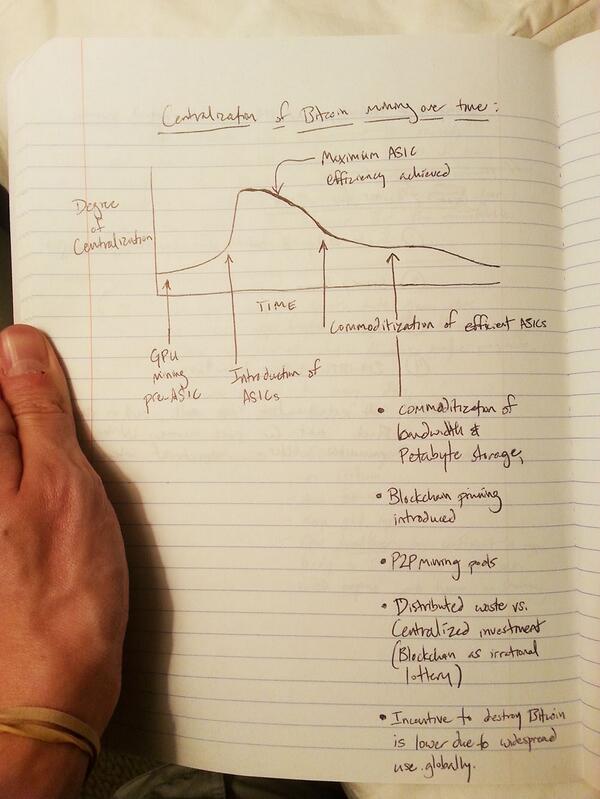 Centralization of Bitcoin mining over time:
Maximum ASIC
efficiency achieved
Degree
of
Centralization
TIME
Commoditization of efficient ASICs
GPU
mining
pre-ASIC
Introduction of
ASICs
• commoditization of
bandwidth &
Petabyte storage,
• Blockchain pruning
introduced
• P2P mining pools
• Distributed waste vs.
Centralized investment
(Blockchain as irrational
lottery)
• Incentive to destroy Bitcoin
is lower due to widespread
use globally.